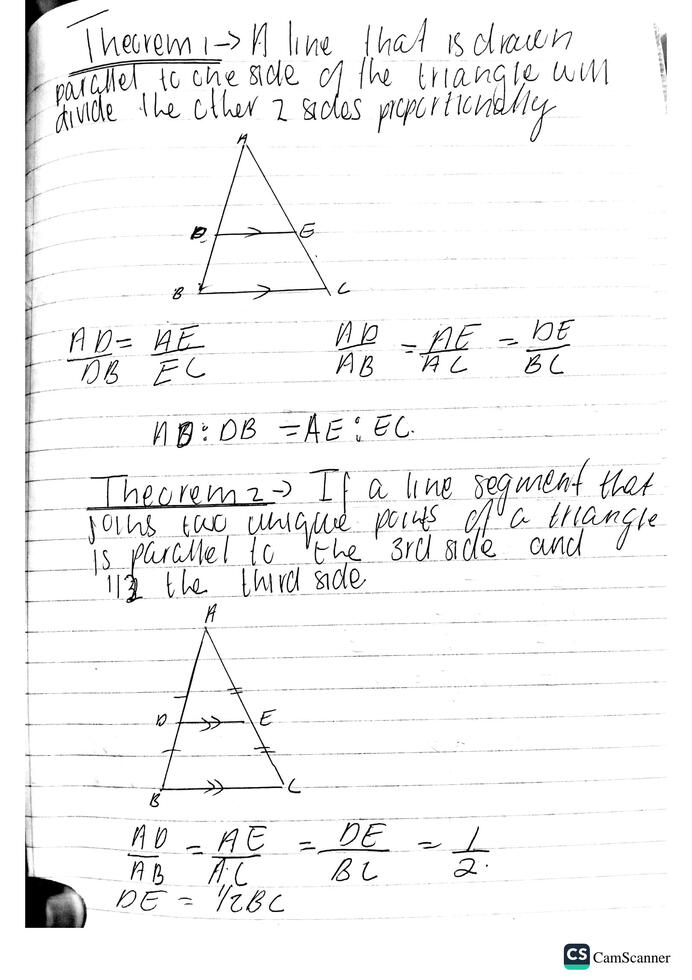 Theorem 1 → A line that is drawn
parallel to one side of the triangle will
divide the other 2 sides proportionally
A
D E
B C
AD/DB = AE/EC AD/AB = AE/AC = DE/BC
AD : DB = AE : EC.
Theorem 2 → If a line segment that
joins two unique points of a triangle
is parallel to the 3rd side and
the third side
A
D E
B C
AD/AB = AE/AC = DE/BC = 1/2.
DE = 1/2BC
CS CamScanner